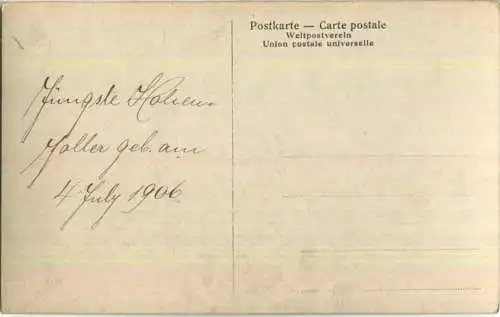 Postkarte — Carte postale
Weltpostverein
Union postale universelle
Jüngste Hohen-
zoller geb. am
4 July 1906.